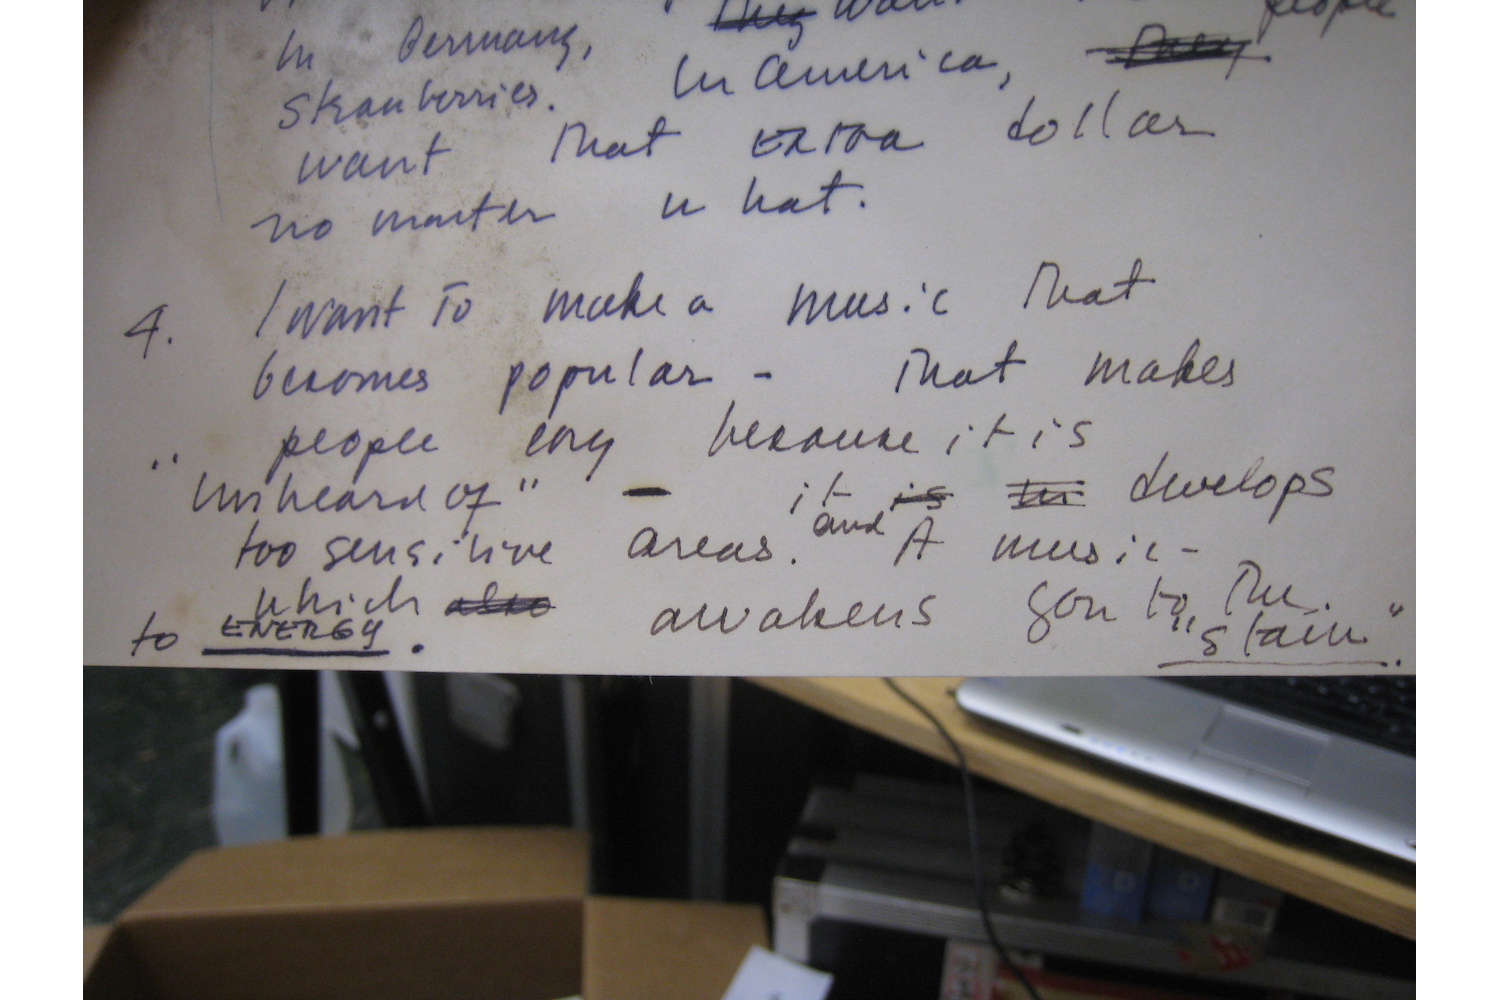 In Germany, They want people
strawberries. In America, They
want that EXTRA dollar
no matter what.
4. I want to make a music that
becomes popular - that makes
people cry because it is
"Unheard of" - it is develops
too sensitive areas. and A music -
which also awakens you to the
to ENERGY. "stain".